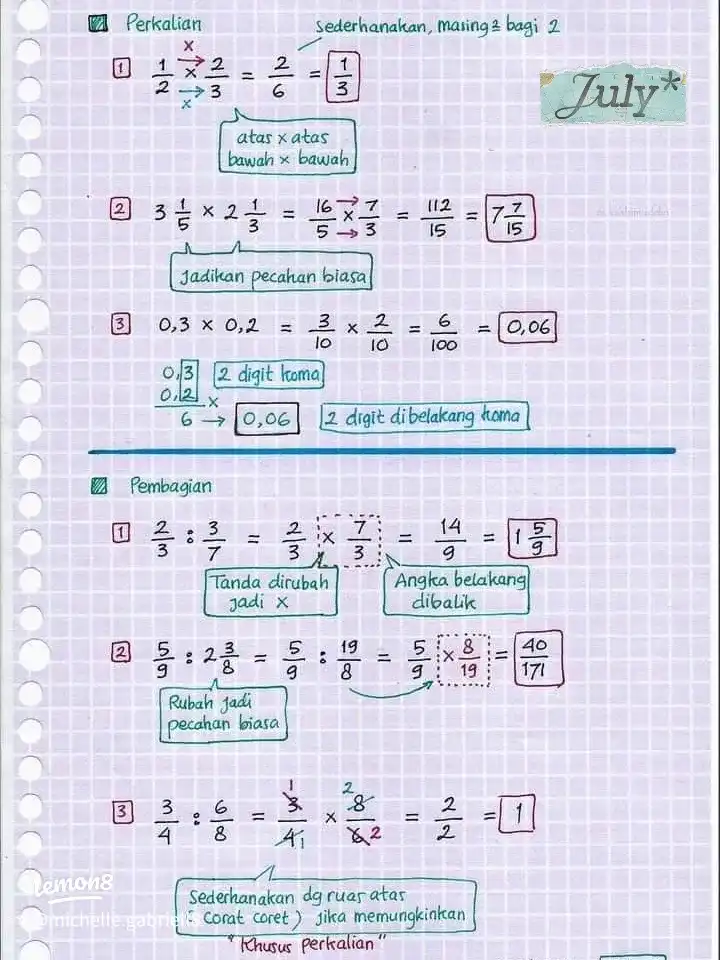 Perkalian
Sederhanakan, masing2 bagi 2
July*
1 1/2 x 2/3 = 2/6 = 1/3
x
x
atas x atas
bawah x bawah
2 3 1/5 x 2 1/3 = 16/5 x 7/3 = 112/15 = 7 7/15
Jadikan pecahan biasa
3 0,3 x 0,2 = 3/10 x 2/10 = 6/100 = 0,06
0,3 2 digit koma
0,2 x
6 → 0,06 2 digit dibelakang koma
Pembagian
1 2/3 : 3/7 = 2/3 x 7/3 = 14/9 = 1 5/9
Tanda dirubah
jadi x
Angka belakang
dibalik
2 5/9 : 2 3/8 = 5/9 : 19/8 = 5/9 x 8/19 = 40/171
Rubah jadi
pecahan biasa
3 3/4 : 6/8 = 3/4 x 8/6 = 2/2 = 1
1 2
1 2
Sederhanakan dg ruas atas
(Corat coret) jika memungkinkan
"Khusus Perkalian"
lemon8